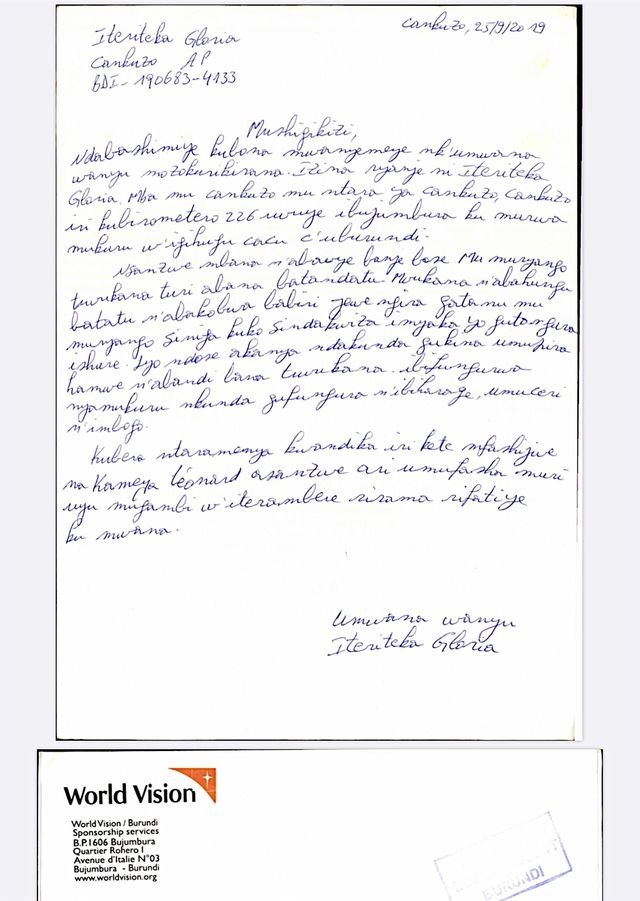 Iteriteka Gloria
Cankuzo, 25/9/2019
Cankuzo AP
BDI-190683-4133
Mushigikizi,
Ndabashimiye kubona mwanyemeye nk'umwana
wanyu mozokurikirana. Izina ryanje ni Iteriteka
Gloria. Mba mu cankuzo mu ntara ya cankuzo, Cankuzo
iri kubirometero 226 uvuye ibujumbura ku murwa
mukuru w'igihugu cacu c'uburundi.
Nsanzwe mbana n'abavyeyi banje bose. Mu muryango
tuvukana turi abana batandatu. Mvukana n'abahungu
batatu n'abakobwa babiri jewe ngira gatanu mu
muryango. Siniga kuko sindakwiza imyaka yo gutangura
ishure. Iyo ndose akanya ndakunda gukina umupira
hamwe n'abandi bana tuvukana. ibifungurwa
nyamukuru nkunda gufungura n'ibiharage, umuceri
n'imboga.
Kubera ntaramenya kwandika iri kete mfashijwe
na Kameya Léonard asanzwe ari umufasha muri
uyu mugambi w'iterambere rirama rifatiye
ku mwana.
Umwana wanyu
Iteriteka Gloria
World Vision
World Vision / Burundi
Sponsorship services
B.P.1606 Bujumbura
Quartier Rohero I
Avenue d'Italie N°03
Bujumbura - Burundi
www.worldvision.org
BURUNDI